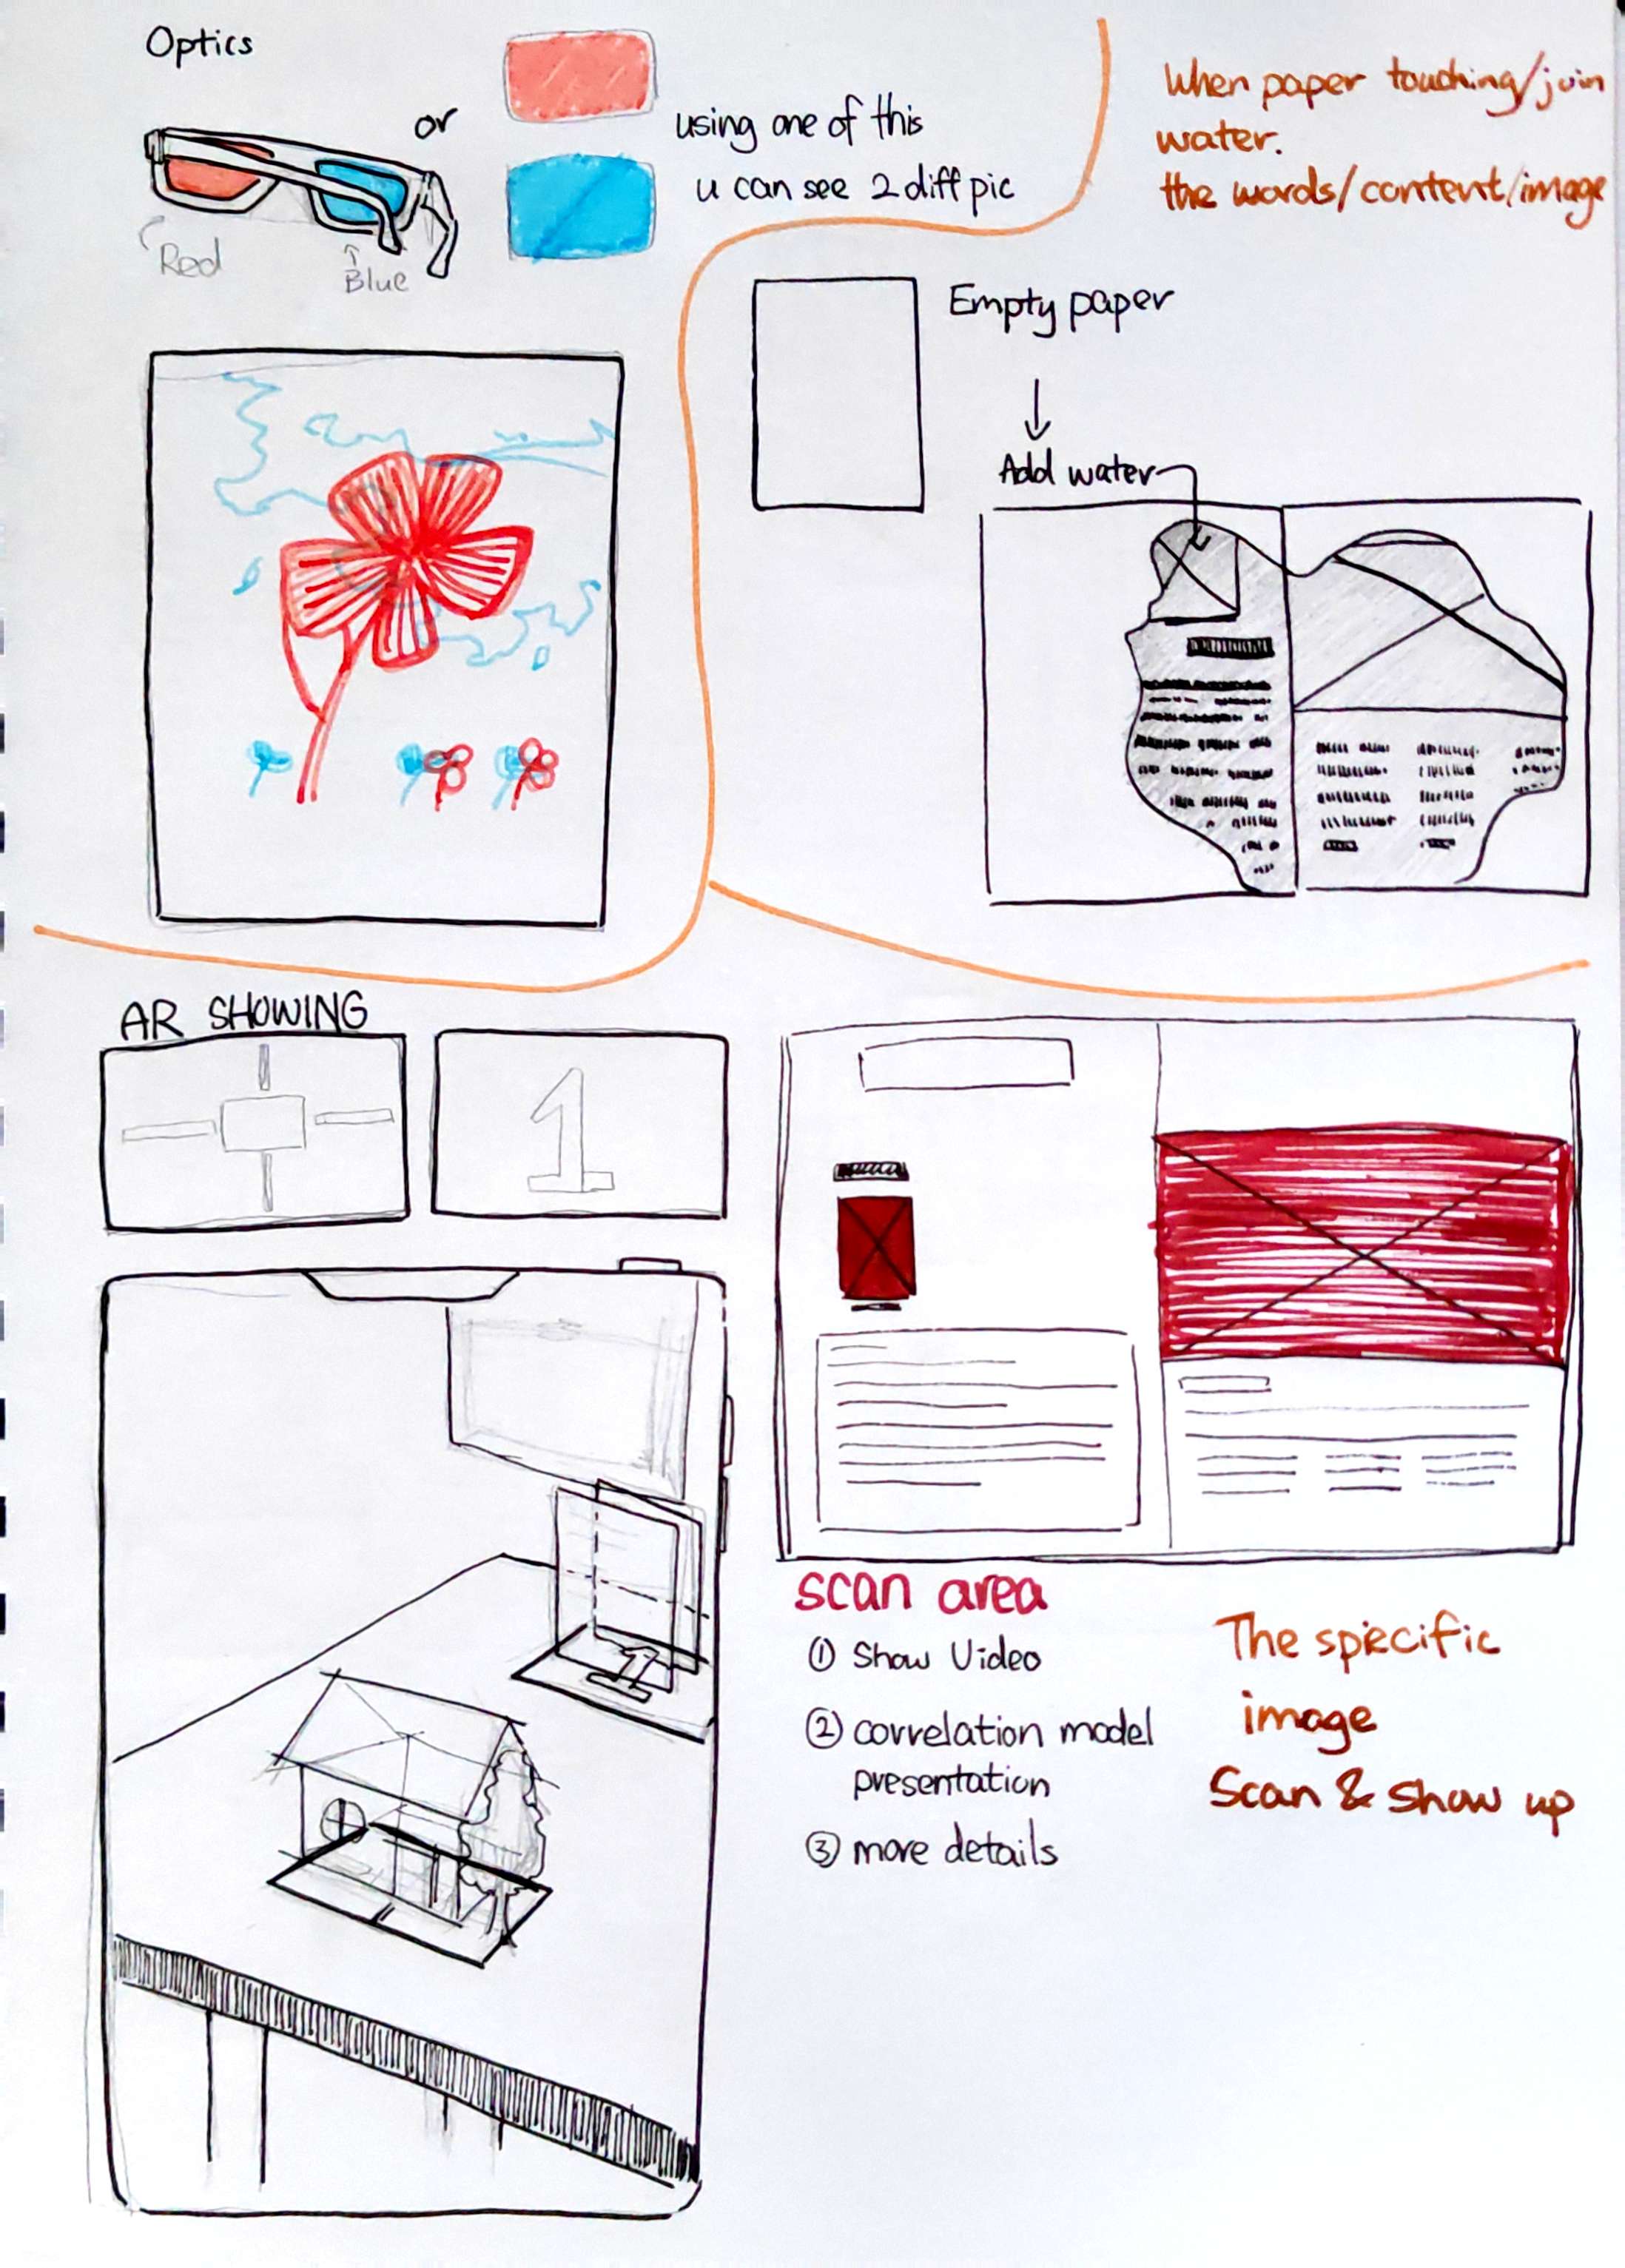 Optics
or
using one of this
u can see 2 diff pic
Red
Blue
When paper touching/join
water.
the words/content/image
Empty paper
Add water
AR SHOWING
1
1
scan area
① Show Video
② correlation model
presentation
③ more details
The specific
image
Scan & Show up